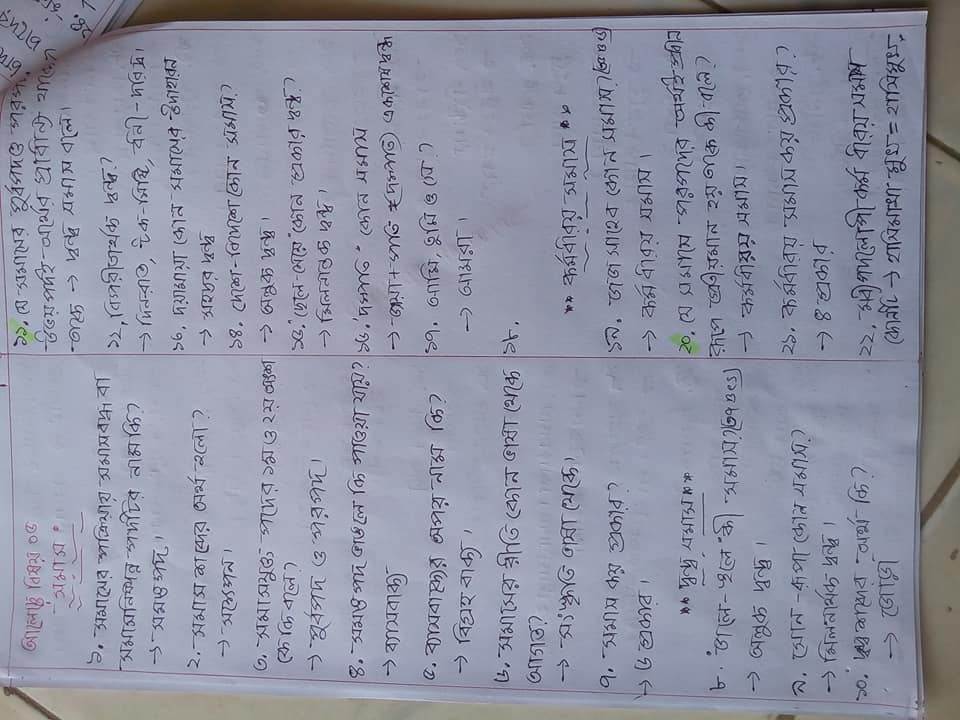 আলোচ্য বিষয় ০৫
সমাস :
১. সমাসের প্রক্রিয়ায় সমাসবদ্ধ বা
সমাসনিষ্পন্ন পদটির নাম কি?
→ সমস্তপদ।
২. সমাস শব্দের অর্থ হলো?
→ সংক্ষেপন।
৩. সমাসযুক্ত পদের ১ম ও ২য় অংশ
কে কি বলে?
→ পুর্বপদ ও পরপদ।
৪. সমস্ত পদ ভাঙলে কি পাওয়া যায়?
→ ব্যাসবাক্য
৫. ব্যাসবাক্যের অপর নাম কি?
→ বিগ্রহ বাক্য।
৬. সমাসের রীতি কোন ভাষা থেকে
আগত?
→ সংস্কৃতি ভাষা থেকে।
৭. সমাস কয় প্রকার?
→ ৬ প্রকার।
** দ্বন্দ্ব সমাস **
৮. জলে-স্থলে কী সমাস?
→ অলুক দ্বন্দ্ব।
৯. সোন-রূপা কোন সমাস?
→ মিলনার্থক দ্বন্দ্ব।
১০. দ্বন্দ্ব শব্দের অর্থ কি?
→ জোড়া
১১. যে সমাসের পুর্বপদও পরপদ
উভয়পদই অর্থের প্রাধান্য থাকে
তাকে → দ্বন্দ্ব সমাস বলে।
১২. বিপরীতার্থক দ্বন্দ্ব?
→ দিনরাত, টক-মিষ্টি, ধনী-দরিদ্র।
১৩. দয়ামায়া কোন সমাসের উদাহরন
→ সহচর দ্বন্দ্ব
১৪. দেশে-বিদেশে কোন সমাস?
→ অলুক দ্বন্দ্ব।
১৫. "ছেলে-মেয়ে" কোন প্রকার দ্বন্দ্ব?
→ মিলনাত্তক দ্বন্দ্ব।
১৬. "দম্পতি" কোন সমাস
→ জায়া + পতি = (দম্পতি) একশেষ দ্বন্দ্ব
১৭. আমি, তুমি ও সে?
→ আমরা।
১৮.
** কর্মধারয় সমাস **
১৯. জজ সাহেব কোন সমাস?
→ কর্মধারয় সমাস।
২০. যে সমাসে পরপদের অর্থই প্রধান
রূপে প্রতীয়মান হয় তাকে কী বলে?
→ কর্মধারয় সমাস।
২১. কর্মধারয় সমাস কয় প্রকার?
→ ৪ প্রকার
২২. মধ্যপদলোপী কর্মধারয় সমাস
কোনটি → হাসিমাখা মুখ = হাসিমুখ,